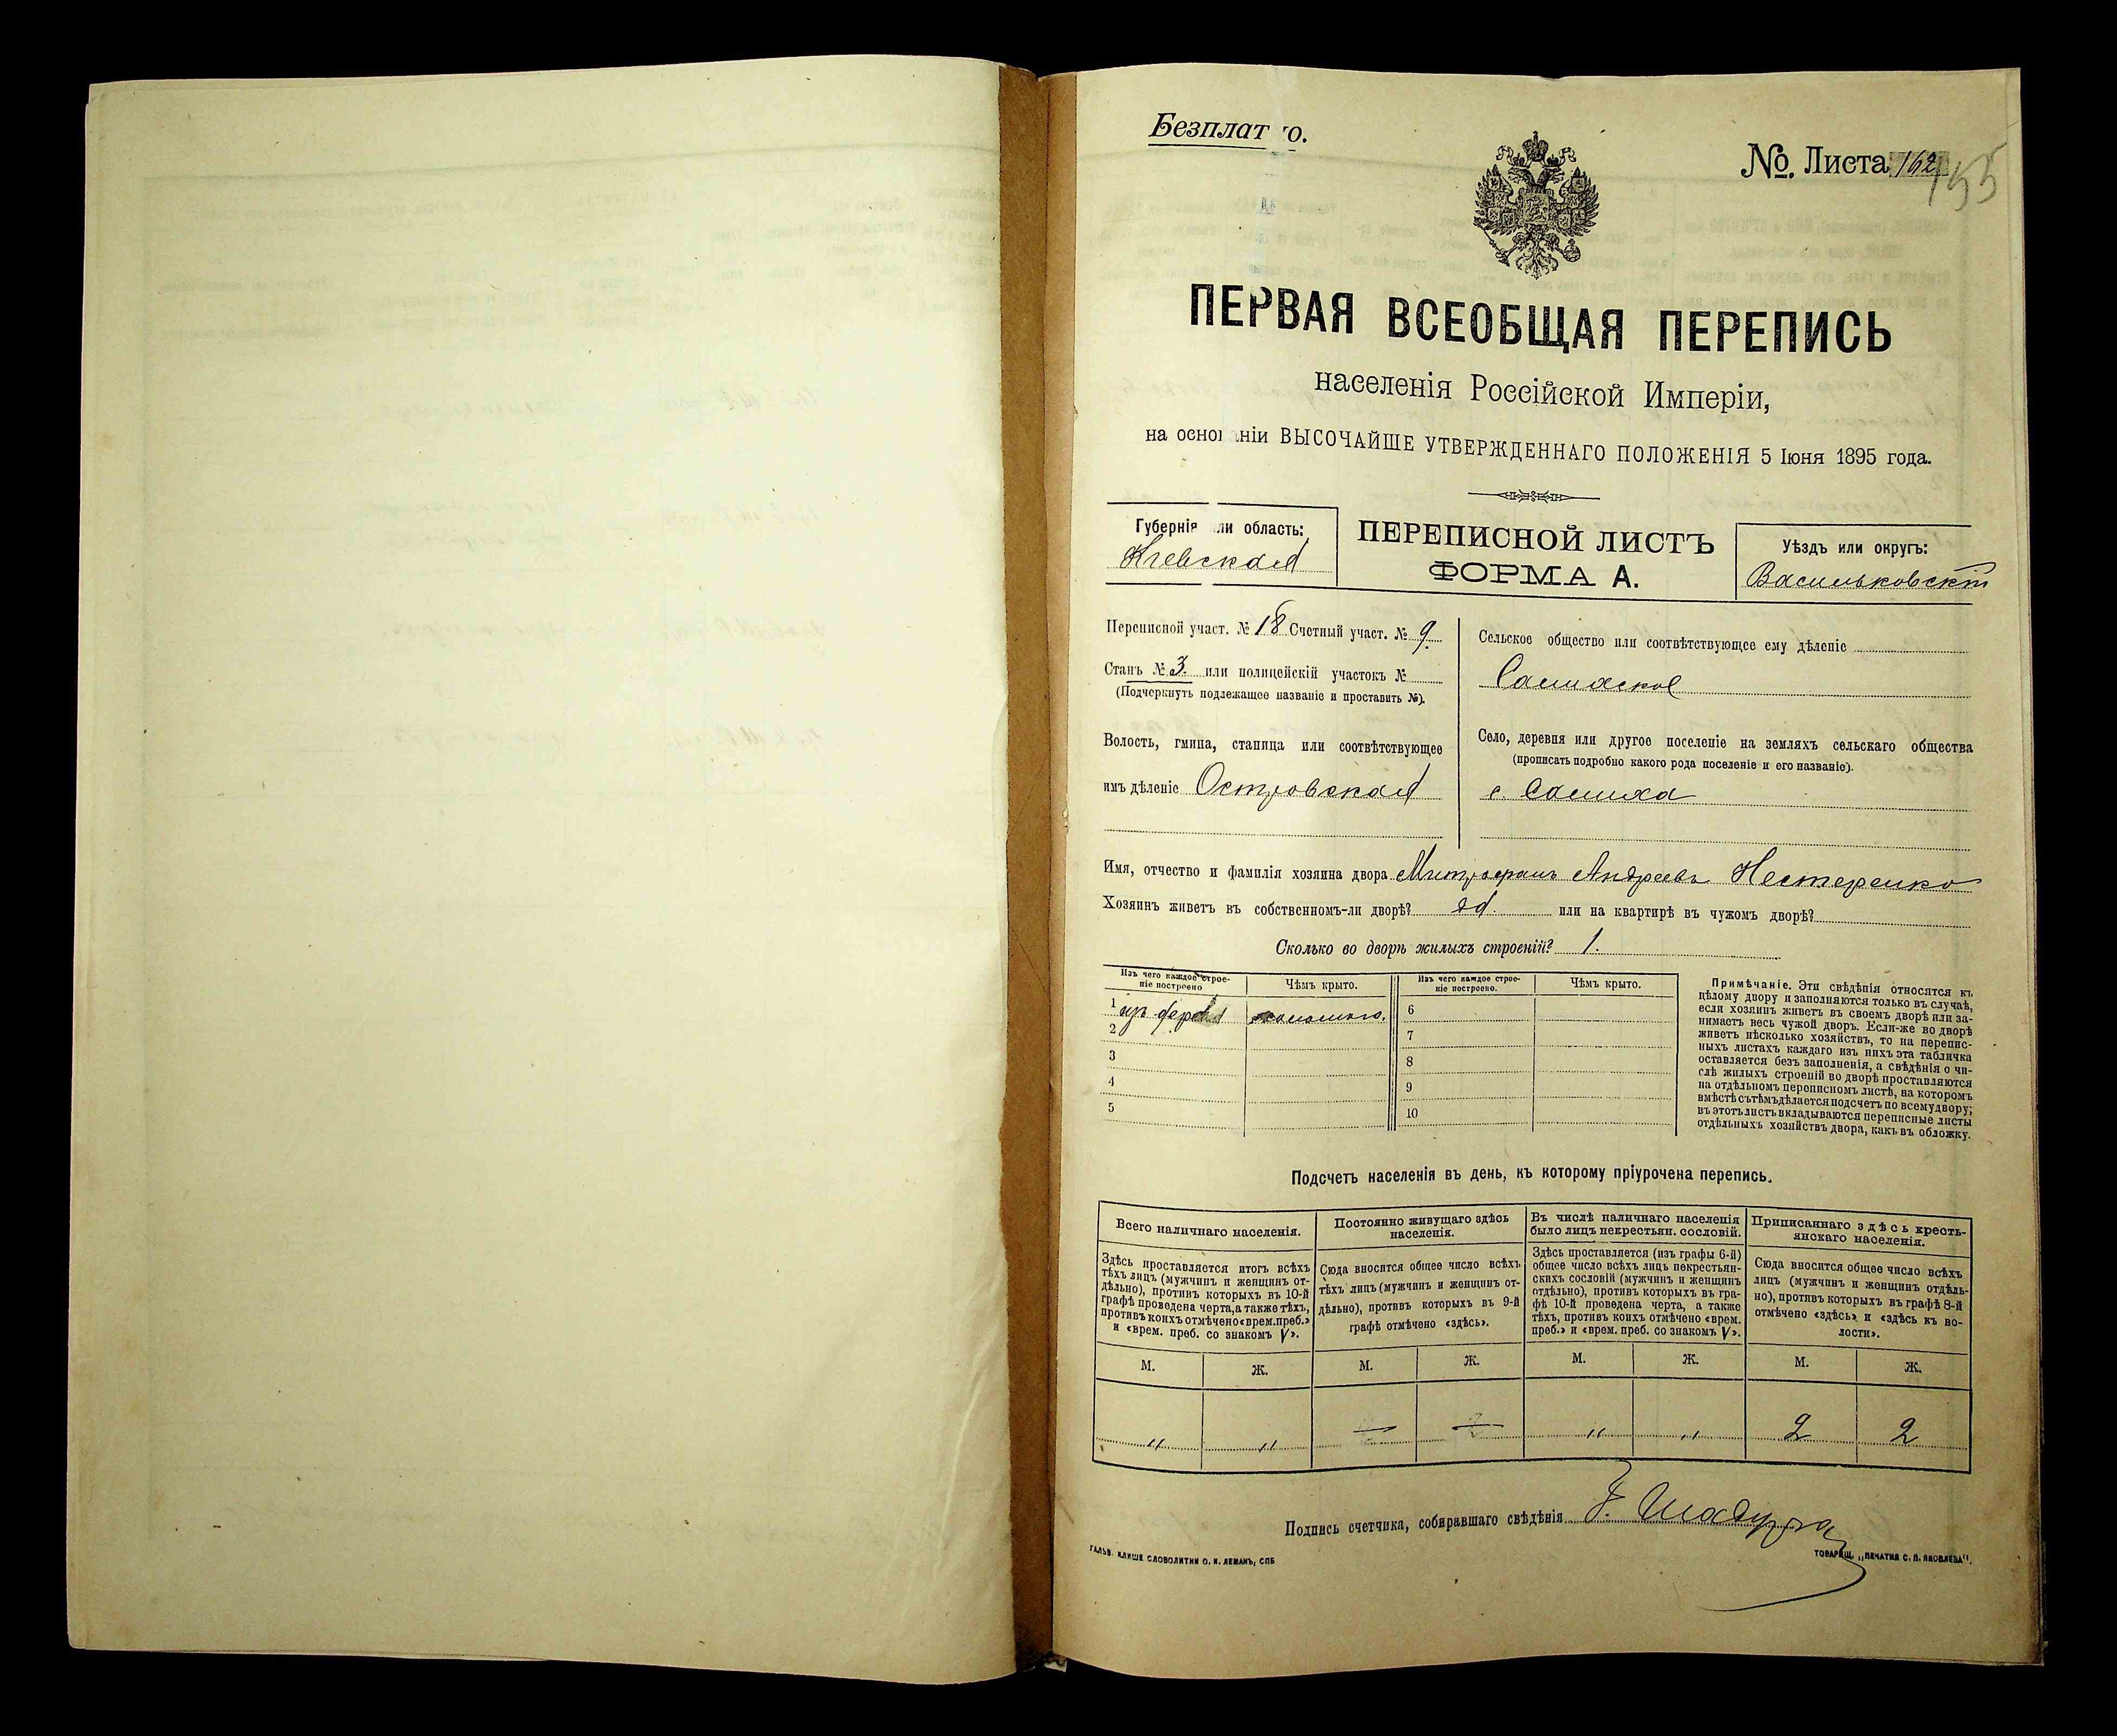 Безплат о.
№. Листа 162
155
ПЕРВАЯ ВСЕОБЩАЯ ПЕРЕПИСЬ
населенія Россійской Имперіи,
на основаніи ВЫСОЧАЙШЕ УТВЕРЖДЕННАГО ПОЛОЖЕНІЯ 5 Іюня 1895 года.
Губернія или область:
Кіевская
ПЕРЕПИСНОЙ ЛИСТЪ
ФОРМА А.
Уѣздъ или округъ:
Васильковскій
Переписной участ. № 18 Счетный участ. № 9.
Станъ № 3. или полицейскій участокъ №
(Подчеркнуть подлежащее названіе и проставить №).
Волость, гмина, станица или соотвѣтствующее
имъ дѣленіе Островская
Сельское общество или соотвѣтствующее ему дѣленіе
Село, деревня или другое поселеніе на земляхъ сельскаго общества
(прописать подробно какого рода поселеніе и его названіе).
с.
Имя, отчество и фамилія хозяина двора Митрофанъ Андреевъ Нестеренко
Хозяинъ живетъ въ собственномъ-ли дворѣ? да. или на квартирѣ въ чужомъ дворѣ?
Сколько во дворѣ жилыхъ строеній? 1.
Изъ чего каждое строе-
ніе построено
Чѣмъ крыто.
Изъ чего каждое строе-
ніе построено.
Чѣмъ крыто.
1 изъ дерева соломою.
2
3
4
5
6
7
8
9
10
Примѣчаніе. Эти свѣдѣнія относятся къ
цѣлому двору и заполняются только въ случаѣ,
если хозяинъ живетъ въ своемъ дворѣ или за-
нимаетъ весь чужой дворъ. Если-же во дворѣ
живетъ нѣсколько хозяйствъ, то на перепис-
ныхъ листахъ каждаго изъ нихъ эта табличка
оставляется безъ заполненія, а свѣдѣнія о чи-
слѣ жилыхъ строеній во дворѣ проставляются
на отдѣльномъ переписномъ листѣ, на которомъ
вмѣстѣ съ тѣмъ дѣлается подсчетъ по всему двору;
въ этотъ листъ вкладываются переписные листы
отдѣльныхъ хозяйствъ двора, какъ въ обложку.
Подсчетъ населенія въ день, къ которому пріурочена перепись.
Всего наличнаго населенія.
Здѣсь проставляется итогъ всѣхъ
тѣхъ лицъ (мужчинъ и женщинъ от-
дѣльно), противъ которыхъ въ 10-й
графѣ проведена черта, а также тѣхъ,
противъ коихъ отмѣчено «врем. преб.»
и «врем. преб. со знакомъ V».
Постоянно живущаго здѣсь
населенія.
Сюда вносится общее число всѣхъ
тѣхъ лицъ (мужчинъ и женщинъ от-
дѣльно), противъ которыхъ въ 9-й
графѣ отмѣчено «здѣсь».
Въ числѣ наличнаго населенія
было лицъ некрестьян. сословій.
Здѣсь проставляется (изъ графы 6-й)
общее число всѣхъ лицъ некрестьян-
скихъ сословій (мужчинъ и женщинъ
отдѣльно), противъ которыхъ въ гра-
фѣ 10-й проведена черта, а также
тѣхъ, противъ коихъ отмѣчено «врем.
преб.» и «врем. преб. со знакомъ V».
Приписаннаго здѣсь кресть-
янскаго населенія.
Сюда вносится общее число всѣхъ
лицъ (мужчинъ и женщинъ отдѣль-
но), противъ которыхъ въ графѣ 8-й
отмѣчено «здѣсь» и «здѣсь къ во-
лости».
М. Ж. М. Ж. М. Ж. М. Ж.
" " " " 2 2
Подпись счетчика, собиравшаго свѣдѣнія
ГАЛЬВ. КЛИШЕ СЛОВОЛИТНИ О. И. ЛЕМАНЪ, СПБ
ТОВАРИЩ. „ПЕЧАТНЯ С. П. ЯКОВЛЕВА".